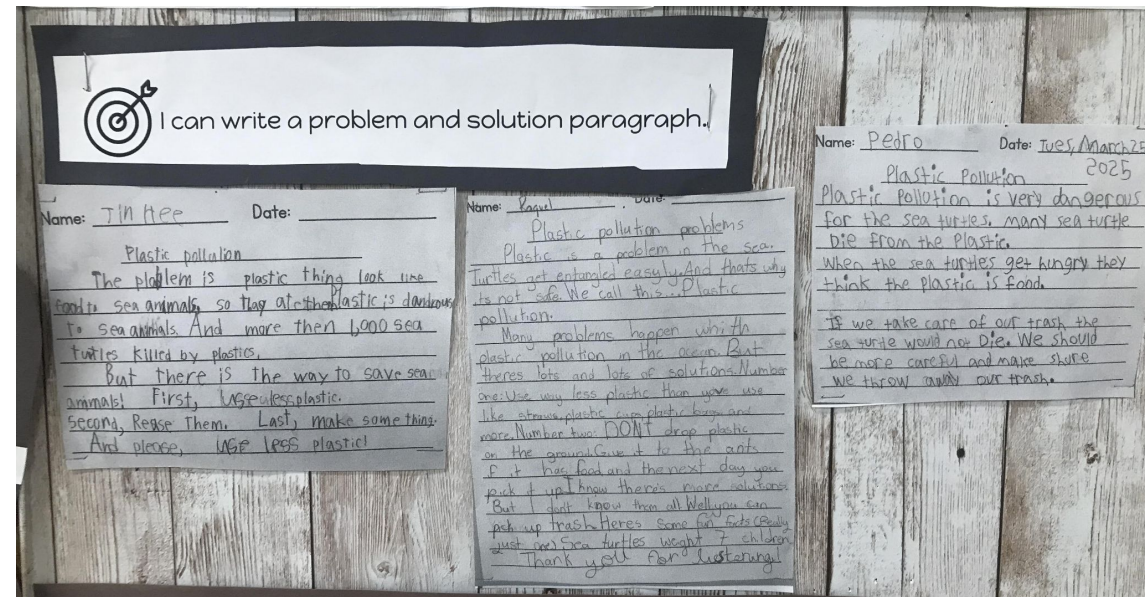 I can write a problem and solution paragraph.
Name: Jin Hee Date:
Plastic pollution
The ploblem is plastic thing look like
food to sea animals, so thay ate them plastic is dangerous
to sea animals. And more then 1,000 sea
turtles killed by plastics.
But there is the way to save sea
animals! First, use less plastic.
Second, Reuse Them. Last, make some thing.
And please, use less plastic!
Name: Raquel Date:
Plastic pollution problems
Plastic is a problem in the sea.
Turtles get entangled easyly. And thats why
its not safe. We call this... Plastic
pollution.
Many problems happen whith
plastic pollution in the ocean. But
theres lots and lots of solutions. Number
one: Use way less plastic than you use
like straws, plastic cups, plastic bags and
more. Number two: DON'T drop plastic
on the ground. Give it to the ants
if it has food and the next day you
pick it up. I know there's more solutions
But I don't know them all. Well, you can
pick up trash. Heres some fun facts (Really
just one) Sea turtles weight 7 children
Thank you for listerning!
Name: Pedro Date: Tues, March 25
2025
Plastic Pollution
Plastic Pollution is very dangerous
for the sea turtles. many sea turtle
Die from the Plastic.
When the sea turtles get hungry they
think the plastic is food.
If we take care of our trash the
sea turtle would not Die. We should
be more careful and make shure
we throw away our trash.